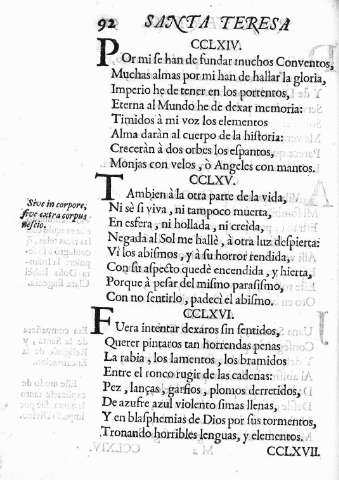 92 SANTA TERESA
CCLXIV.
POr mi se han de fundar muchos Conventos,
Muchas almas por mi han de hallar la gloria,
Imperio he de tener en los portentos,
Eterna al Mundo he de dexar memoria:
Timidos à mi voz los elementos
Alma daràn al cuerpo de la historia:
Creceràn à dos orbes los espantos,
Monjas con velos, ò Angeles con mantos.
CCLXV.
Sive in corpore,
sive extra corpus
nescio.
TAmbien à la otra parte de la vida,
Ni sè si viva, ni tampoco muerta,
En esfera, ni hollada, ni creida,
Negada al Sol me hallè, à otra luz despierta:
Vi los abismos, y à su horror rendida,
Con su aspecto quedè encendida, y hierta,
Porque à pesar del mismo parasismo,
Con no sentirlo, padecì el abismo.
CCLXVI.
FUera intentar dexaros sin sentidos,
Querer pintaros tan horrendas penas
La rabia, los lamentos, los bramidos
Entre el ronco rugir de las cadenas:
Pez, lanças, garfios, plomos derretidos,
De azufre azul violento simas llenas,
Y en blasphemias de Dios por sus tormentos,
Tronando horribles lenguas, y elementos.
CCLXVII.